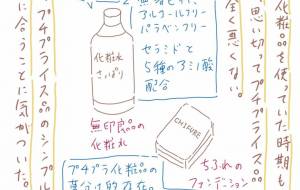 化粧品を使っていた時期も
思い切ってプチプライス品
全く悪くない。
アルコールフリー
パラベンフリー
セラミドと
5種のアミノ酸
配合
化粧水
さっぱり
無印良品の
化粧水
CHIFURE
ちふれの
ファンデーション
プチプライス品のシンプル
に合うことに気がついた。
プチプラ化粧品の